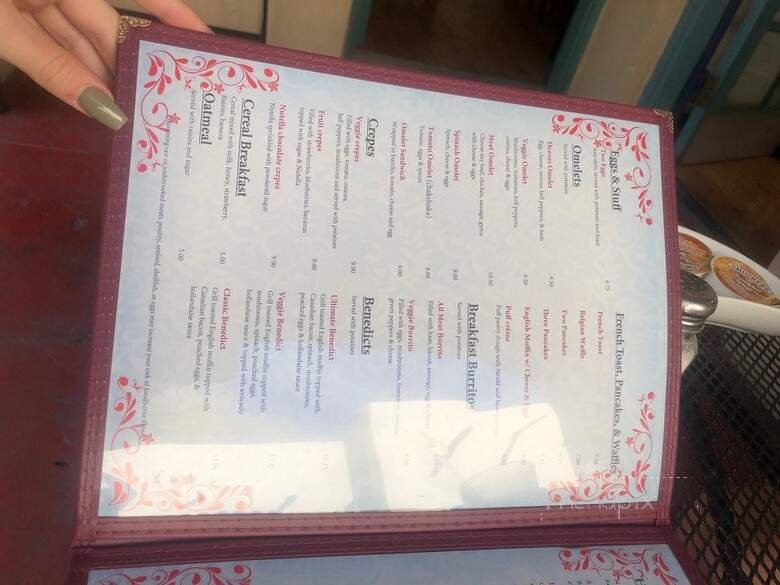 Eggs & Stuff
Two Eggs
Any style, served with potatoes and toast 6.75
Omelets
Served with potatoes
Denver Omelet
Egg, cheese, onions, bell peppers, & ham 9.50
Veggie Omelet
Mushrooms, tomatoes, bell peppers,
onions, cheese & eggs 9.50
Meat Omelet
Choose any beef, chicken, sausage, gyros
with cheese & eggs 10.50
Spinach Omelet
Spinach, cheese & eggs 9.00
Tomato Omelet (chakshuka)
Tomato, eggs & spices 8.00
Omelet sandwich
Wrapped as burrito, tomato, cheese and egg 9.00
Crepes
Veggie crepes
Filled with eggs, tomato, onions,
bell peppers, mushroom and served with potatoes 9.00
Fruit crepes
Filled with strawberries, blueberries, bananas
topped with sugar & Nutella 9.00
Nutella chocolate crepes
Nutella sprinkled with powdered sugar 9.00
Cereal Breakfast
Cereal mixed with milk, honey, strawberry,
Raisins, banana 5.00
Oatmeal
Served with raisins and sugar 5.00
French Toast, Pancakes, & Waffles
French Toast
Belgian Waffle
Two Pancakes
Three Pancakes
English Muffin w/ Cheese &
Puff crème
Puff pastry dough with
Breakfast Burritos
Served with potatoes
All Meat Burrito
Filled with ham, bacon, sausage, egg & cheese
Veggie Burrito
Filled with eggs, mushrooms, tomatoes, onions,
green peppers & cheese
Benedicts
Served with potatoes
Ultimate Benedict
Grill toasted English muffin topped with
Canadian bacon, spinach, mushrooms,
poached eggs & hollandaise sauce
Veggie Benedict
Grill toasted English muffin topped with
mushrooms, spinach, poached eggs,
hollandaise sauce & topped with avocado
Classic Benedict
Grill toasted English muffin topped with
Canadian bacon, poached eggs, &
hollandaise sauce
raw or undercooked meats, poultry, seafood, shellfish, or eggs may increase your risk of foodborne illness
menupix